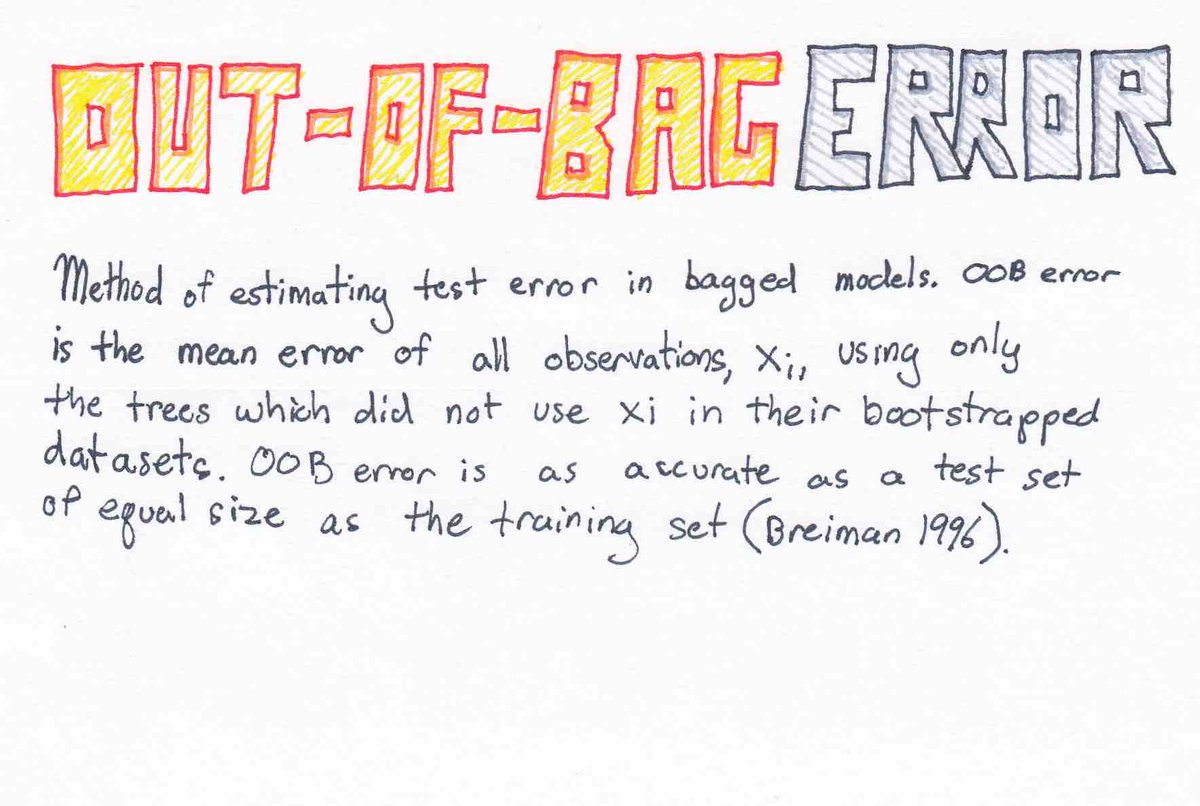 OUT-OF-BAG ERROR
Method of estimating test error in bagged models. OOB error
is the mean error of all observations, xi, using only
the trees which did not use xi in their bootstrapped
datasets. OOB error is as accurate as a test set
of equal size as the training set (Breiman 1996).